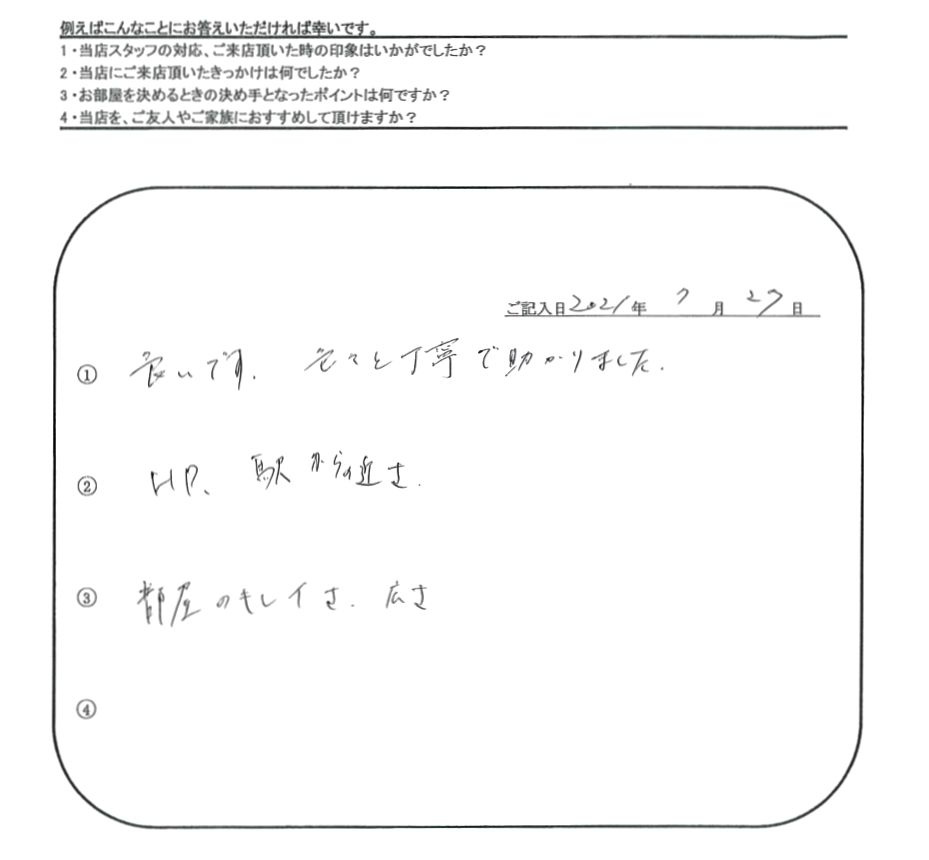 例えばこんなことにお答えいただければ幸いです。
1・当店スタッフの対応、ご来店頂いた時の印象はいかがでしたか？
2・当店にご来店頂いたきっかけは何でしたか？
3・お部屋を決めるときの決め手となったポイントは何ですか？
4・当店を、ご友人やご家族におすすめして頂けますか？
ご記入日2021年 7月 27日
① 良いです. 色々と丁寧で助かりました.
② HP、駅からの近さ.
③ 部屋のキレイさ. 広さ
④